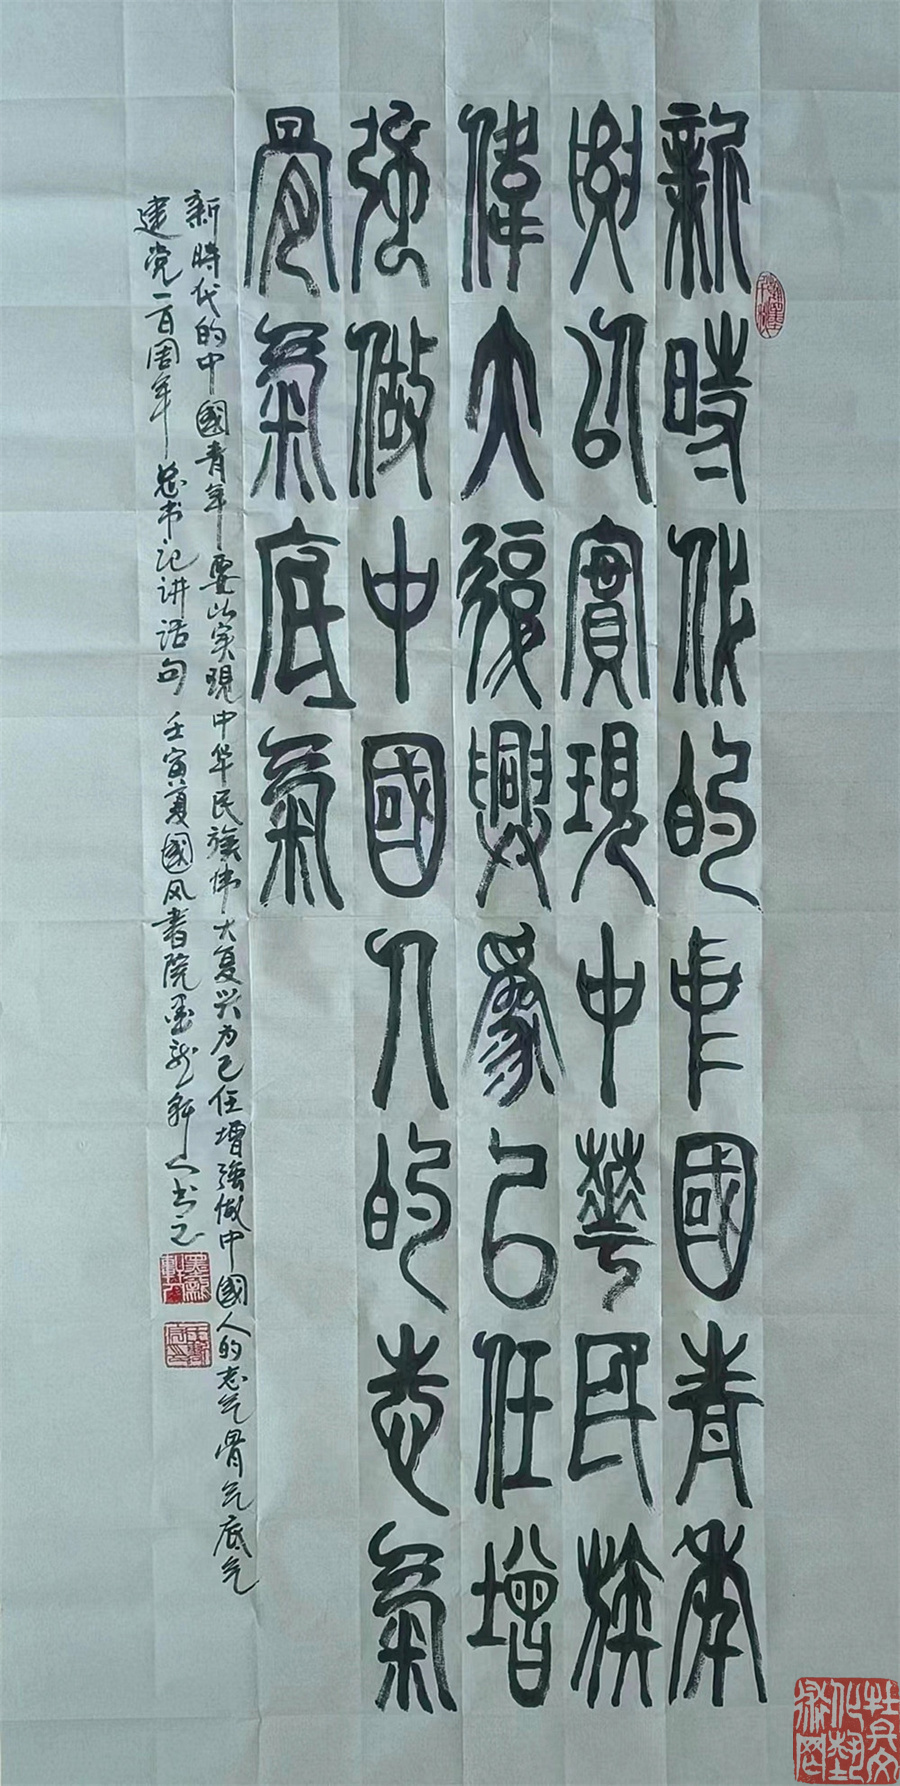 新時代的中國青年
要以實現中華民族
偉大復興為己任增
強做中國人的志氣
骨氣底氣
新時代的中國青年要以实現中华民族伟大复兴为己任增强做中國人的志气骨气底气
建党一百周年总书记讲话句 壬寅夏國风書院墨龙轩人书之